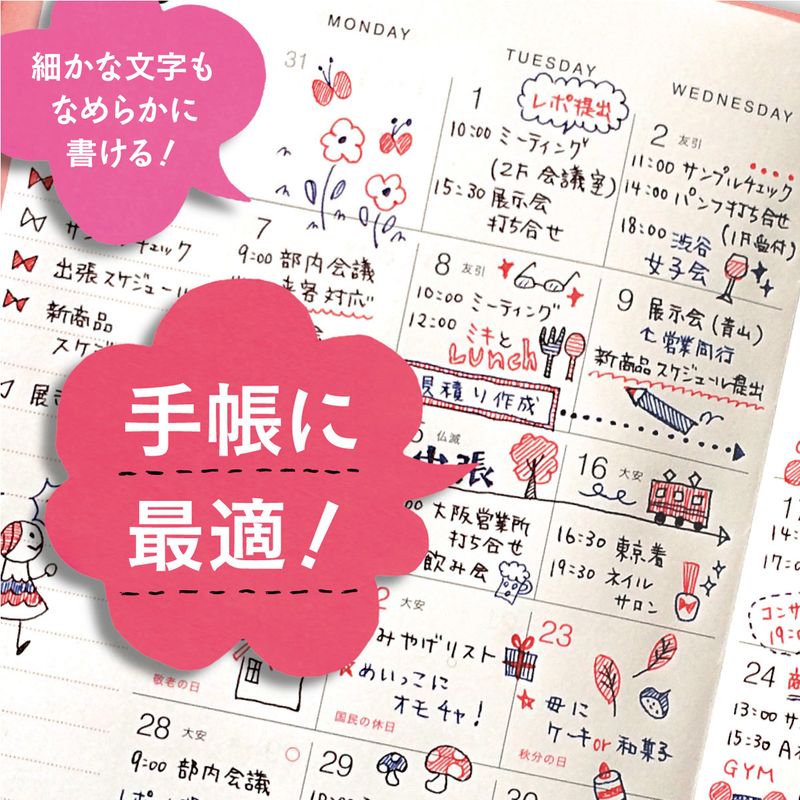 細かな文字も
なめらかに
書ける!
手帳に
最適!
MONDAY
TUESDAY
WEDNESDAY
31
1
レポ提出
10:00 ミーティング
(2F 会議室)
15:30 展示会
打ち合せ
2 友引
11:00 サンプルチェック
14:00 パンフ打ち合せ
(1F受付)
18:00 渋谷
女子会
チェック
出張スケジュール
新商品
スケジ
7
9:00 部内会議
来客対応
8 友引
10:00 ミーティング
12:00 ミキと
Lunch
見積り作成
9 展示会(青山)
営業同行
新商品スケジュール提出
仏滅
出張
大阪営業所
打ち合せ
飲み会
16 大安
16:30 東京着
19:30 ネイル
サロン
敬老の日
2 大安
みやげリスト
めいっこに
オモチャ!
国民の休日
23
母に
ケーキor和菓子
秋分の日
24
13:00
15:30
GYM
28 大安
9:00 部内会議
29
30